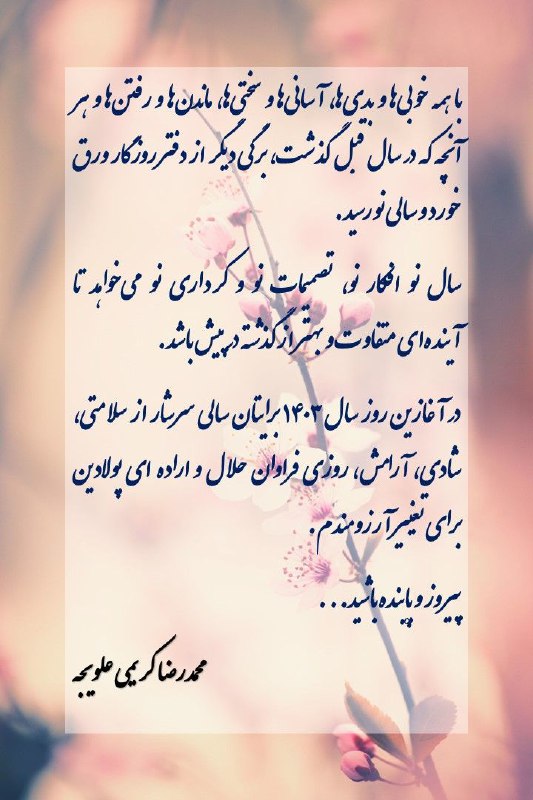 با همه خوبی‌ها و بدی‌ها، آسانی‌ها و سختی‌ها، ماندن‌ها و رفتن‌ها و هر
آنچه که در سال قبل گذشت، برگی دیگر از دفتر روزگار ورق
خورد و سالی نو رسید.
سال نو افکار نو، تصمیمات نو و کرداری نو می‌خواهد تا
آینده‌ای متفاوت و بهتر از گذشته در پیش باشد.
در آغازین روز سال ۱۴۰۳ برایتان سالی سرشار از سلامتی،
شادی، آرامش، روزی فراوان حلال و اراده ای پولادین
برای تغییر آرزومندم.
پیروز و پاینده باشید...
محمدرضا کریمی علویجه